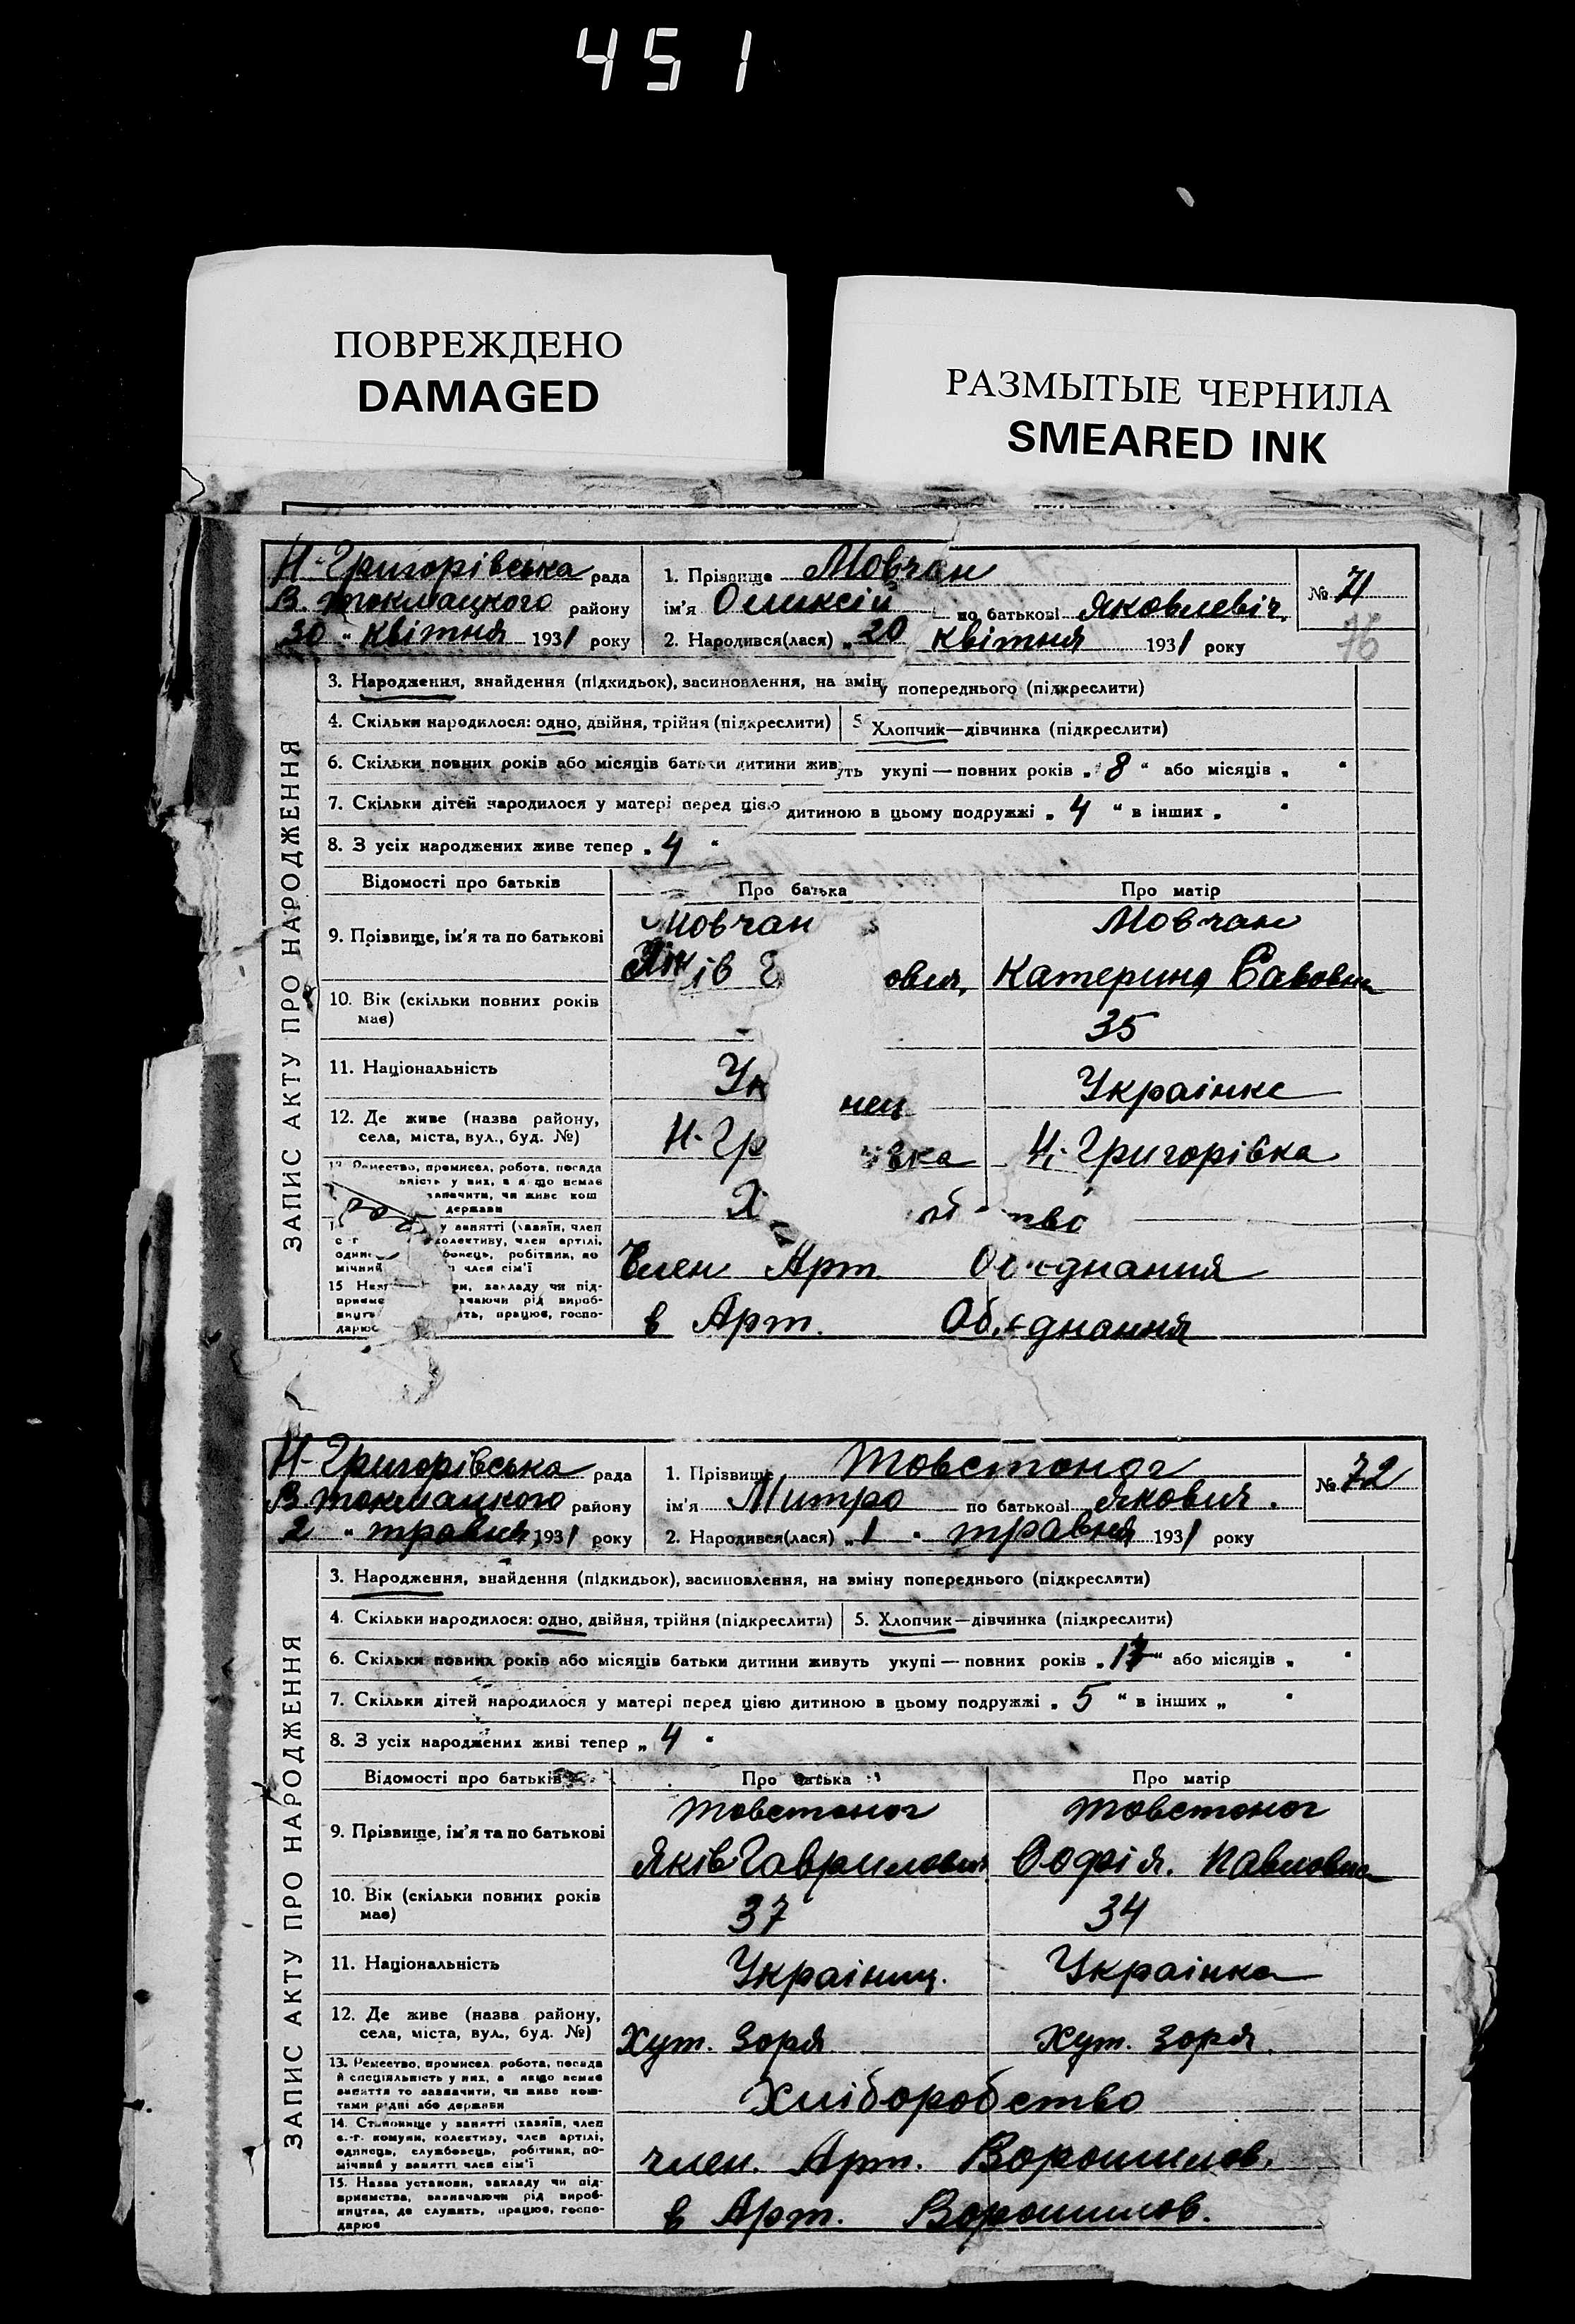 451
ПОВРЕЖДЕНО
DAMAGED
РАЗМЫТЫЕ ЧЕРНИЛА
SMEARED INK
Н-Григорівська рада
В. токмацкого району
30 " квітня 1931 року
1. Прізвище Мовчан
ім'я Оликсій по батькові Яковлевіч,
2. Народився(лася) „20 квітня 1931 року
№ 71
76
ЗАПИС АКТУ ПРО НАРОДЖЕННЯ
3. Народження, знайдення (підкидьок), засиновлення, на зміну попереднього (підкреслити)
4. Скільки народилося: одно, двійня, трійня (підкреслити) 5 Хлопчик—дівчинка (підкреслити)
6. Скільки повних років або місяців батьки дитини живуть укупі — повних років „ 8 " або місяців „ "
7. Скільки дітей народилося у матері перед цією дитиною в цьому подружжі „ 4 " в інших „ "
8. З усіх народжених живе тепер „ 4 "
Відомості про батьків Про батька Про матір
9. Прізвище, ім'я та по батькові Мовчан Мовчан
ів ович, Катерина Савовна
10. Вік (скільки повних років має) 35
11. Національність Ук нец Українка
12. Де живе (назва району, села, міста, вул., буд. №) Н-Гр івка Н-Григорівка
13. Ремество, промисел, робота, посада
у них, а якщо немає
зазначити, чи живе кош
держави
у занятті (хазяїн, член
колективу, член артілі,
робітник, по
мічний член сім'ї
Член Арт. Об'єднання
15 закладу чи під-
рід вироб-
працює, госпо-
дарює
в Арт. Об'єднання
Н-Григорівська рада
В. токмацкого району
2 " травня, 1931 року
1. Прізвище Товстоног
ім'я Митро по батькові Якович.
2. Народився(лася) „1 " травня 1931 року
№ 72
ЗАПИС АКТУ ПРО НАРОДЖЕННЯ
3. Народження, знайдення (підкидьок), засиновлення, на зміну попереднього (підкреслити)
4. Скільки народилося: одно, двійня, трійня (підкреслити) 5. Хлопчик—дівчинка (підкреслити)
6. Скільки повних років або місяців батьки дитини живуть укупі — повних років „ " або місяців „ "
7. Скільки дітей народилося у матері перед цією дитиною в цьому подружжі „ 5 " в інших „ "
8. З усіх народжених живі тепер „ 4 "
Відомості про батьків Про батька Про матір
9. Прізвище, ім'я та по батькові Товстоног Товстоног
Яків Гаврилович Софія. Павловна
10. Вік (скільки повних років має) 37 34
11. Національність Українец. Українка
12. Де живе (назва району, села, міста, вул., буд. №) Хут. Зоря Хут. Зоря.
13. Ремество, промисел, робота, посада
й спеціяльність у них, а якщо немає
заняття то зазначити, чи живе кош-
тами рідні або держави
Хліборобство
14. Становище у занятті (хазяїн, член
с.-г. комуни, колективу, член артілі,
одинець, службовець, робітник, по-
мічний у занятті член сім'ї
член. Арт. Ворошилов.
15. Назва установи, закладу чи під-
приємства, зазначаючи рід вироб-
ництва, де служить, працює, госпо-
дарює
в Арт. Ворошилов.